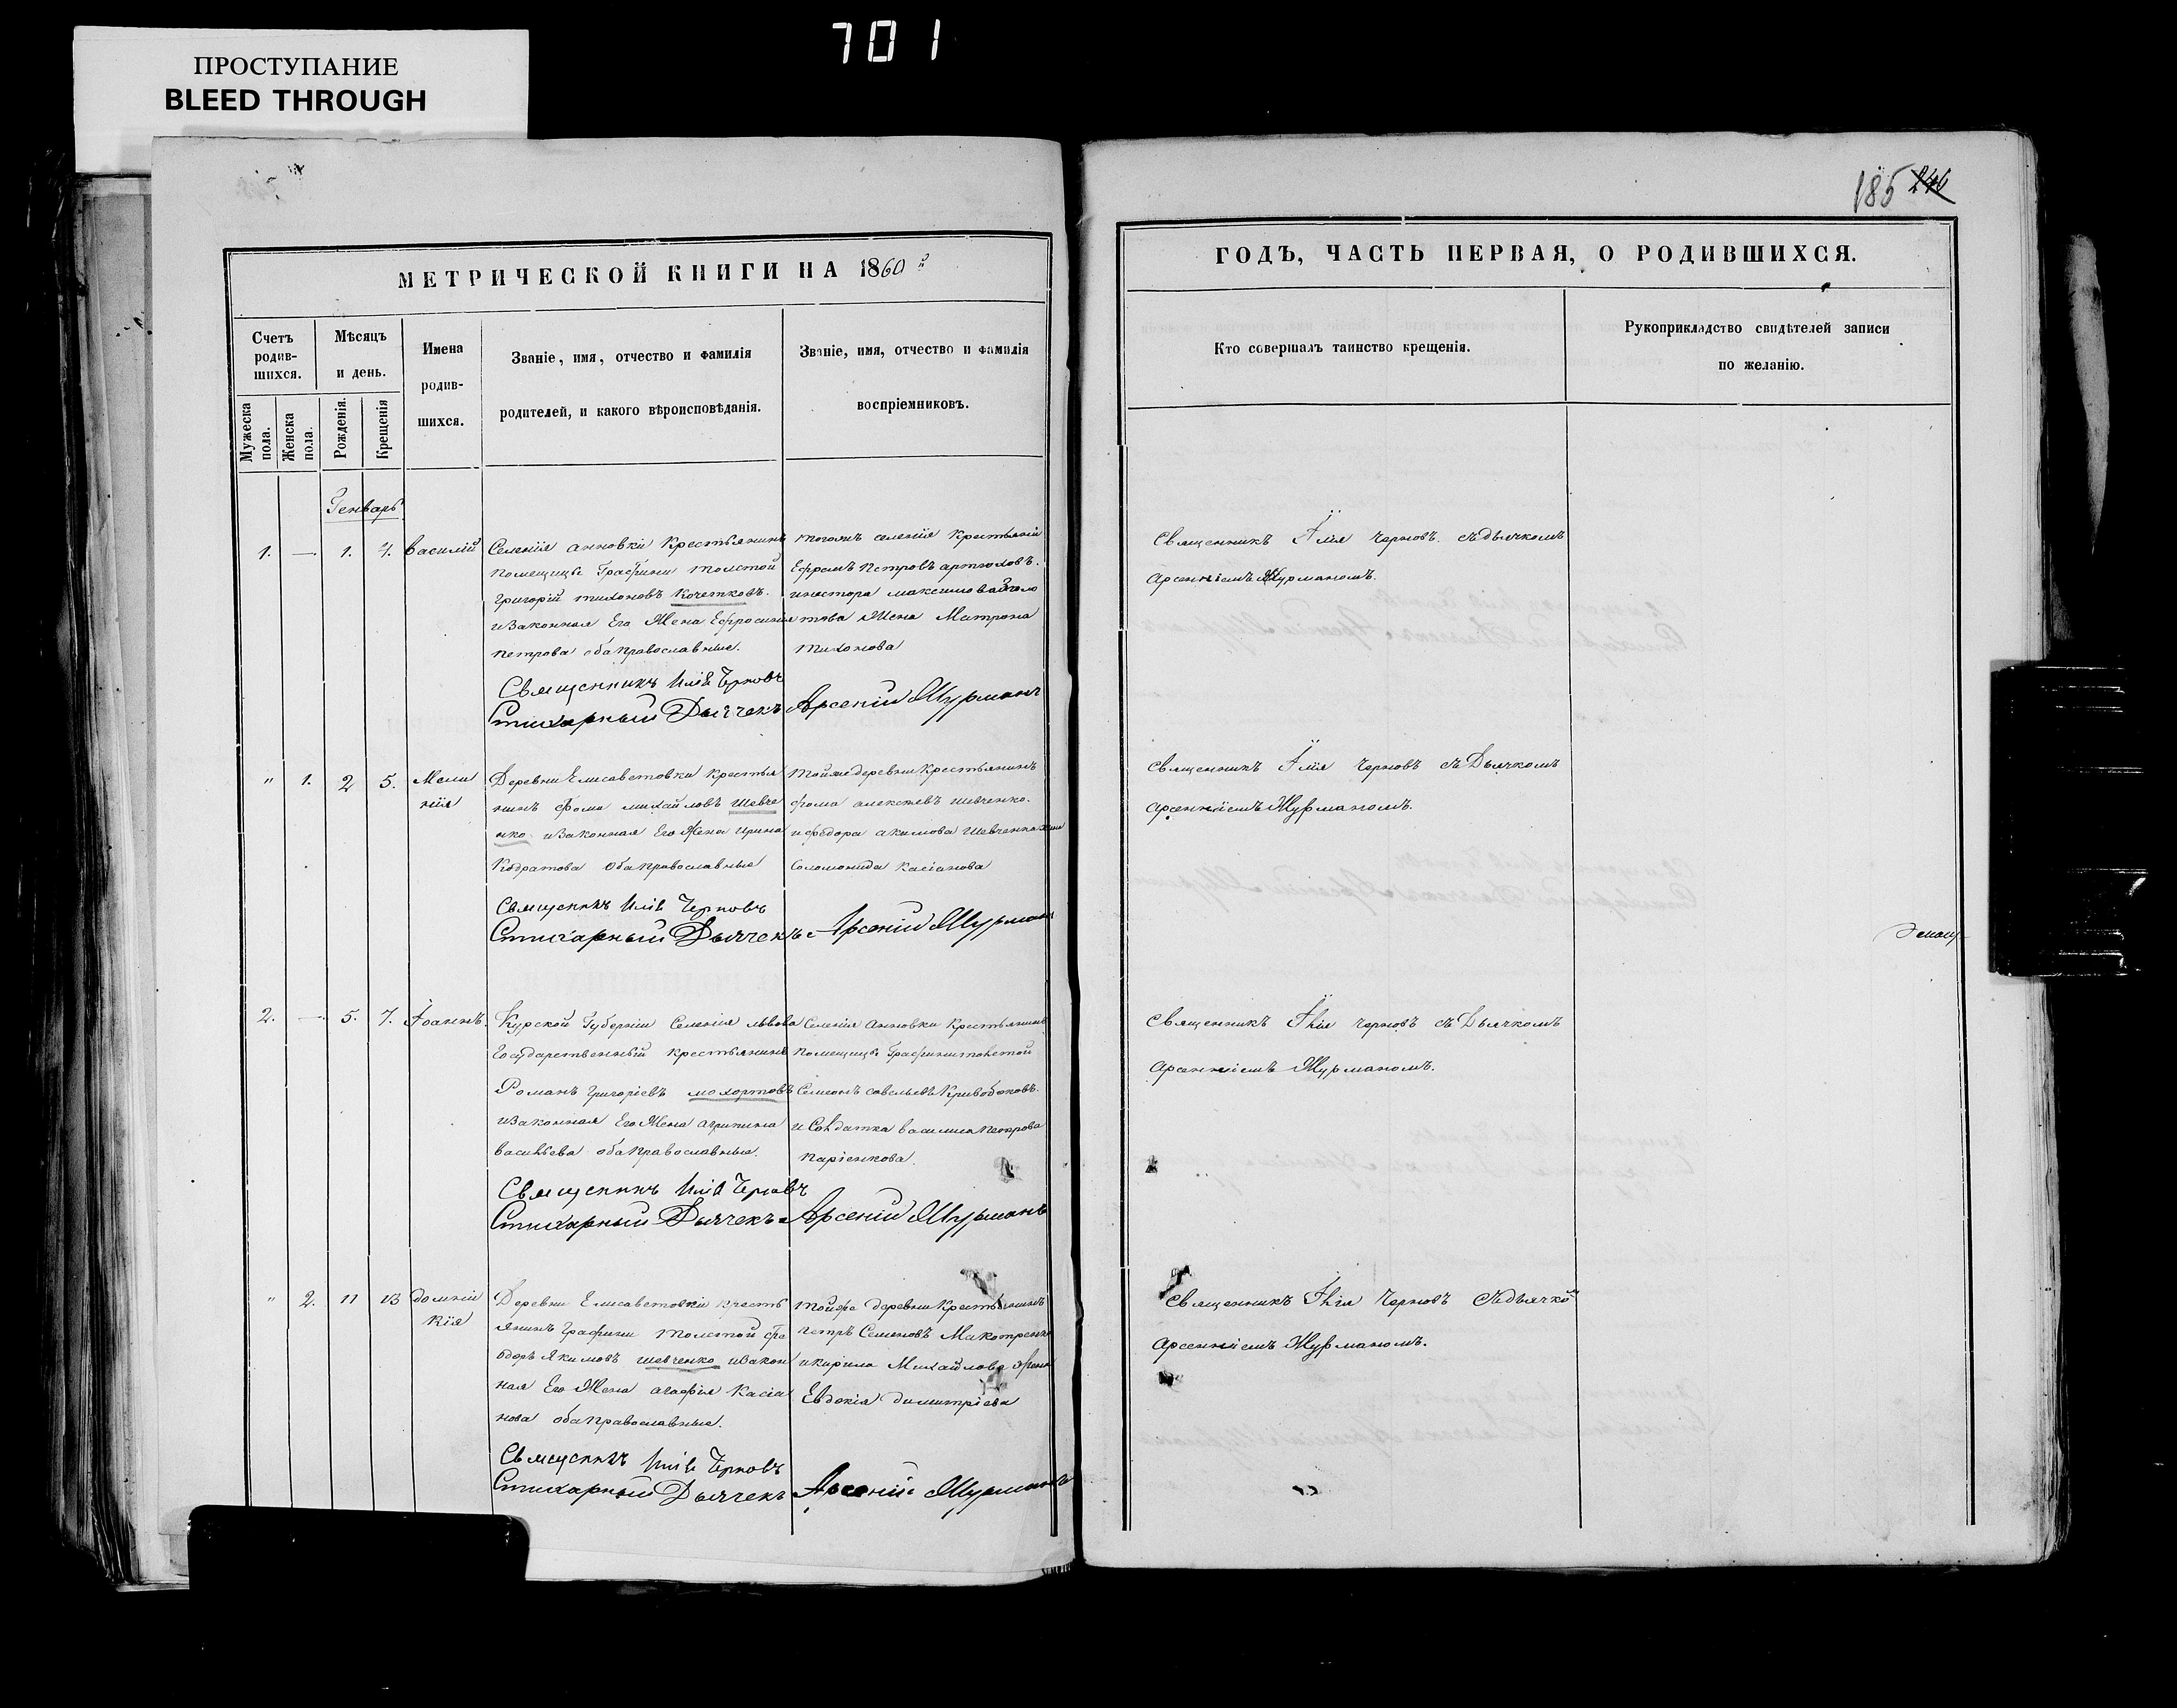 701
ПРОСТУПАНИЕ
BLEED THROUGH
185 246
МЕТРИЧЕСКОЙ КНИГИ НА 1860й
Счетъ родив-шихся.
Мѣсяцъ и день.
Имена родив-шихся.
Званіе, имя, отчество и фамилія родителей, и какого вѣроисповѣданія.
Званіе, имя, отчество и фамилія воспріемниковъ.
Мужеска пола.
Женска пола.
Рожденія.
Крещенія
Генварь
1. — 1. 4. Василій
Селенія Анновки Крестьянинъ
помещицы Графини Толстой
Григорій Тихоновъ Кочетковъ.
и законная Его Жена Ефросинія
Петрова оба православные.
тогожъ селенія крестьянін
Ефремъ Петровъ
Матрона
Тихонова
Священникъ Илія Черновъ
Стихарный Дьячекъ Арсеній Журманъ
" 1. 2 5. Мела
нія
Деревни Елисаветовки крестья
нинъ Фома Михайловъ Шевче
нко и законная Его Жена Ирина
Кодратова оба православные
тойже деревни Крестьянинъ
Фома Алексѣевъ Шевченко.
и Федора Акимова Шевченка жена
Соломонида Касіанова
Священникъ Илія Черновъ
Стихарный Дьячекъ Арсеній Журманъ
2. — 5. 7. Іоаннъ.
Курской Губерніи Селенія Львова
Государственный крестьянинъ
Романъ Григоріевъ Мохортовъ
и законная Его Жена Агрипина
Васильева оба православные.
Селенія Анновки Крестьянинъ
помещицы Графини Толстой
Семеонъ Савельевъ Кривобоковъ.
и Солдатка Василиса Петрова
Священникъ Илія Черновъ
Стихарный Дьячекъ Арсеній Журманъ
" 2. 11 13 Домни
кія
Деревни Елисаветовки кресть
янинъ Графини Толстой Фе
одоръ Якимовъ Шевченко и закон
ная Его Жена Агафія Касіа
нова оба православные.
тойже деревни Крестьянинъ
Петръ Семеновъ
и Кирила Михайлова Жена
Евдокія Димитріева
Священникъ Илія Черновъ
Стихарный Дьячекъ Арсеній Журманъ
ГОДЪ, ЧАСТЬ ПЕРВАЯ, О РОДИВШИХСЯ.
Кто совершалъ таинство крещенія.
Рукоприкладство свидѣтелей записи
по желанію.
Священникъ Илія Черновъ съ дьячкомъ
Арсеніемъ Журманомъ.
Священникъ Илія Черновъ съ Дьячкомъ
Арсеніемъ Журманомъ.
Священникъ Илія Черновъ съ Дьячкомъ
Арсеніемъ Журманомъ.
Священникъ Илія Черновъ съ дьячко
Арсеніемъ Журманомъ.